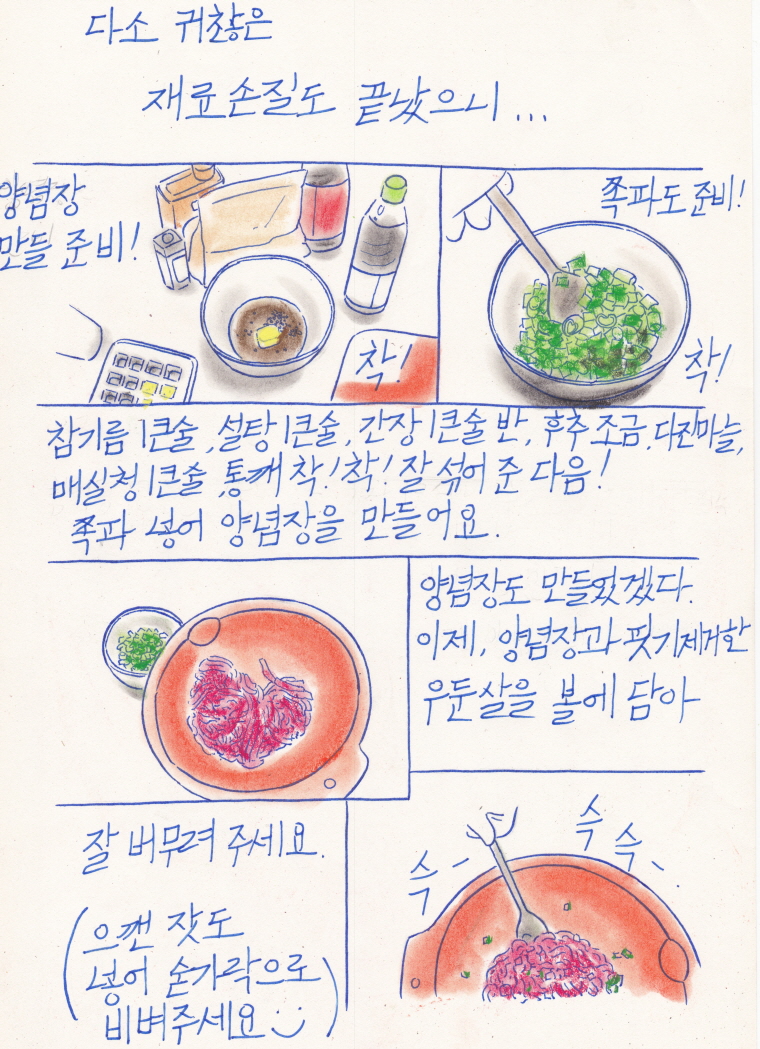 다소 귀찮은
재료손질도 끝났으니...
양념장
만들 준비!
착!
쪽파도 준비!
착!
참기름 1큰술, 설탕 1큰술, 간장 1큰술 반, 후추 조금, 다진마늘,
매실청 1큰술, 통깨 착! 착! 잘 섞어 준 다음!
쪽파 넣어 양념장을 만들어요.
양념장도 만들었겠다.
이제, 양념장과 핏기제거한
우둔살을 볼에 담아
잘 버무려 주세요.
슥
슥
슥
(으깬 잣도
넣어 숟가락으로
비벼주세요)